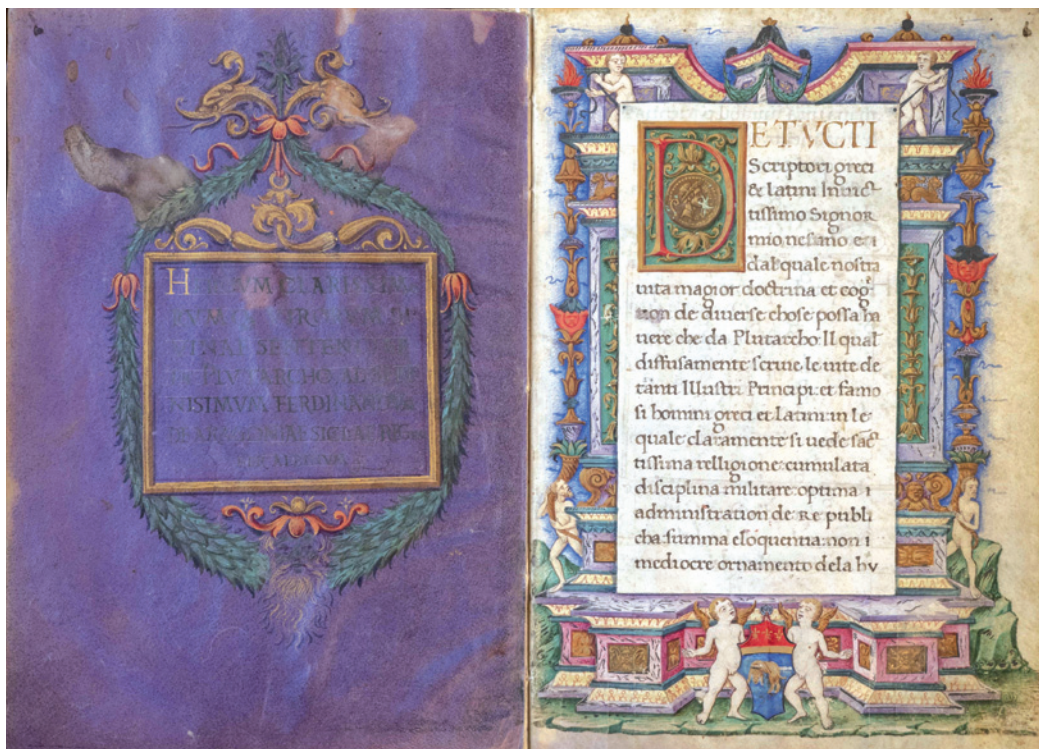 CLARISSIMO
VIRORVM
SENTENTIAE
PLVTARCHO AD
NISIMVM FERDINANDVM
DE ARAGONIA SICILIAE REG
DE TVCTI
Scriptori greci
& Latini Inuict
tissimo Signor
mio nessuno e i
dal quale nostra
uita magior doctrina et cog
tion de diuerse chose possa ha
uere che da Plutarcho Il qual
diffusamente scriue le uite de
tanti Illustri Principi et famo
si homini greci et Latini in le
quale claramente si uede sact
tissima relligione cumulata
disciplina militare optima i
administration de Re publi
cha summa eloquentia non i
mediocre ornamento de la hv